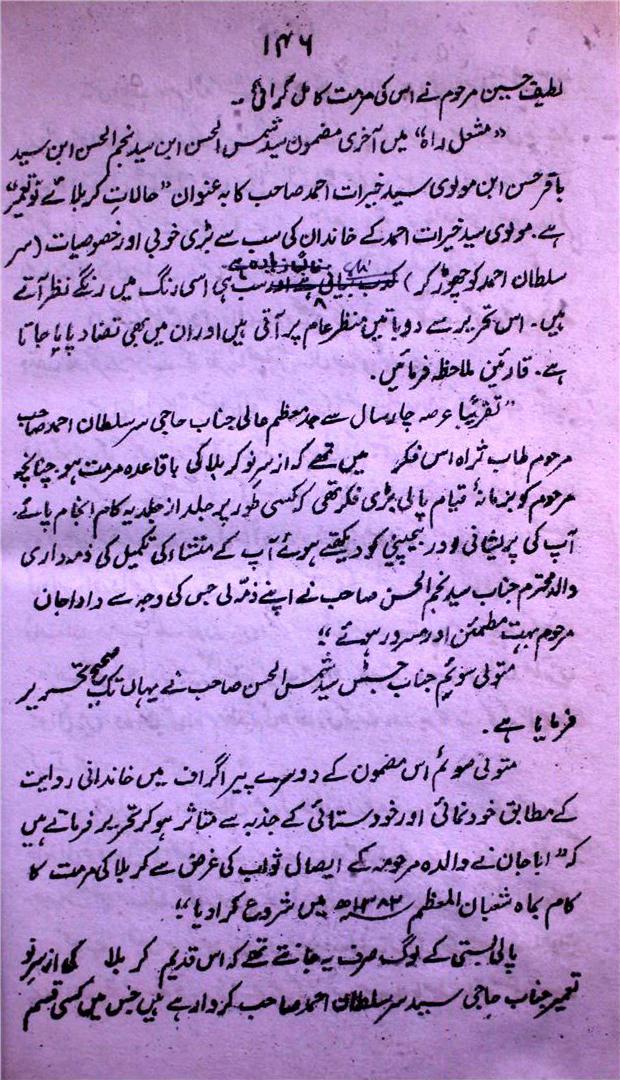 ۱۴۶
لطیف حسین مرحوم نے اس کی مرمت کامل گرائی۔
"مشعل راہ" میں آخری مضمون سید شمس الحسن ابن سید نجم الحسن ابن سید
باقر حسن ابن مولوی سید خیرات احمد صاحب کا بہ عنوان "حالاتِ کربلائے نو تعمیر"
ہے۔ مولوی سید خیرات احمد کے خاندان کی سب سے بڑی خوبی اور خصوصیات (سر
سلطان احمد کو چھوڑ کر) سب ہی اسی رنگ میں رنگے نظر آتے
ہیں۔ اس تحریر سے دو باتیں منظر عام پر آتی ہیں اور ان میں بھی تضاد پایا جاتا
ہے۔ قارئین ملاحظہ فرمائیں۔
"تقریباً عرصہ چار سال سے جد معظم عالی جناب حاجی سر سلطان احمد صاحب
مرحوم طاب ثراہ اس فکر میں تھے کہ از سرِ نو کربلا کی باقاعدہ مرمت ہو چنانچہ
مرحوم کو بزمانۂ قیام پالی بڑی فکر تھی کہ کسی طور پر جلد از جلد یہ کام انجام پائے۔
آپ کی پریشانی و دلچسپی کو دیکھتے ہوئے آپ کے منشاء کی تکمیل کی ذمہ داری
والد محترم جناب سید نجم الحسن صاحب نے اپنے ذمّہ لی جس کی وجہ سے دادا جان
مرحوم بہت مطمئن اور مسرور ہوئے"
متولی سوئم جناب جسٹس سید شمس الحسن صاحب نے یہاں تک صحیح تحریر
فرمایا ہے۔
متولی سوئم اس مضمون کے دوسرے پیراگراف میں خاندانی روایت
کے مطابق خود نمائی اور خودستائی کے جذبہ سے متاثر ہو کر تحریر فرماتے ہیں
کہ "ابا جان نے والدہ مرحومہ کے ایصال ثواب کی غرض سے کربلا کی مرمت کا
کام بماہ شعبان المعظم ۱۳۸۳ھ میں شروع کرا دیا"
پالی بستی کے لوگ صرف یہ جانتے تھے کہ اس قدیم کربلا کی از سرِ نو
تعمیر جناب حاجی سید سر سلطان احمد صاحب کردار ہے ہیں جس میں کسی قسم